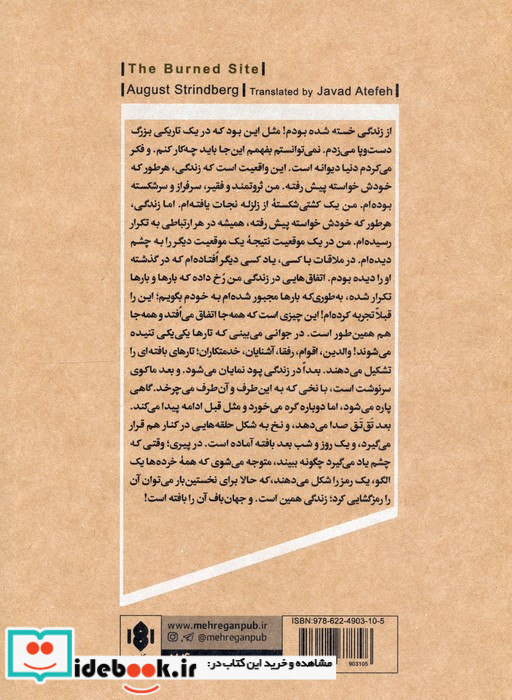 The Burned Site
August Strindberg | Translated by Javad Atefeh
از زندگی خسته شده بودم! مثل این بود که در یک تاریکی بزرگ
دست‌وپا می‌زدم. نمی‌توانستم بفهمم این‌جا باید چه‌کار کنم. و فکر
می‌کردم دنیا دیوانه است. این واقعیت است که زندگی، هرطور که
خودش خواسته پیش رفته. من ثروتمند و فقیر، سرفراز و سرشکسته
بوده‌ام. من یک کشتی‌شکستهٔ از زلزله نجات یافته‌ام. اما زندگی،
هرطور که خودش خواسته پیش رفته، همیشه در هر ارتباطی به تکرار
رسیده‌ام. من در یک موقعیت نتیجهٔ یک موقعیت دیگر را به چشم
دیده‌ام. در ملاقات با کسی، یاد کسی دیگر اُفتاده‌ام که در گذشته
او را دیده بودم. اتفاق‌هایی در زندگی من رُخ داده که بارها و بارها
تکرار شده، به‌طوری‌که بارها مجبور شده‌ام به خودم بگویم؛ این را
قبلاً تجربه کرده‌ام! این چیزی است که همه‌جا اتفاق می‌اُفتد و همه‌جا
هم همین‌طور است. در جوانی می‌بینی که تارها یکی‌یکی تنیده
می‌شوند! والدین، اقوام، رفقا، آشنایان، خدمتکاران؛ تارهای بافته‌ای را
تشکیل می‌دهند. بعداً در زندگی پود نمایان می‌شود. و بعد ماکوی
سرنوشت است، با نخی که به این‌طرف و آن‌طرف می‌چرخد. گاهی
پاره می‌شود، اما دوباره گره می‌خورد و مثل قبل ادامه پیدا می‌کند.
بعد تَق‌تَق صدا می‌دهد، و نخ به شکل حلقه‌هایی در کنار هم قرار
می‌گیرد، و یک روز و شب بعد بافته آماده است. در پیری؛ وقتی که
چشم یاد می‌گیرد چگونه ببیند، متوجه می‌شوی که همهٔ خرده‌ها یک
الگو، یک رمز را شکل می‌دهند، که حالا برای نخستین‌بار می‌توان آن
را رمزگشایی کرد؛ زندگی همین است. و جهان‌باف آن را بافته است!
www.mehreganpub.ir
@mehreganpub
ISBN:978-622-4903-10-5
903105
idebook.ir
مشاهده و خرید این کتاب در: